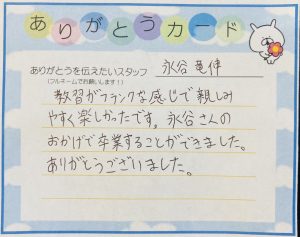 ありがとうカード
ありがとうを伝えたいスタッフ 永谷 竜伸
(フルネームでお願いします！)
教習がフランクな感じで親しみ
やすく楽しかったです。永谷さんの
おかげで卒業することができました。
ありがとうございました。